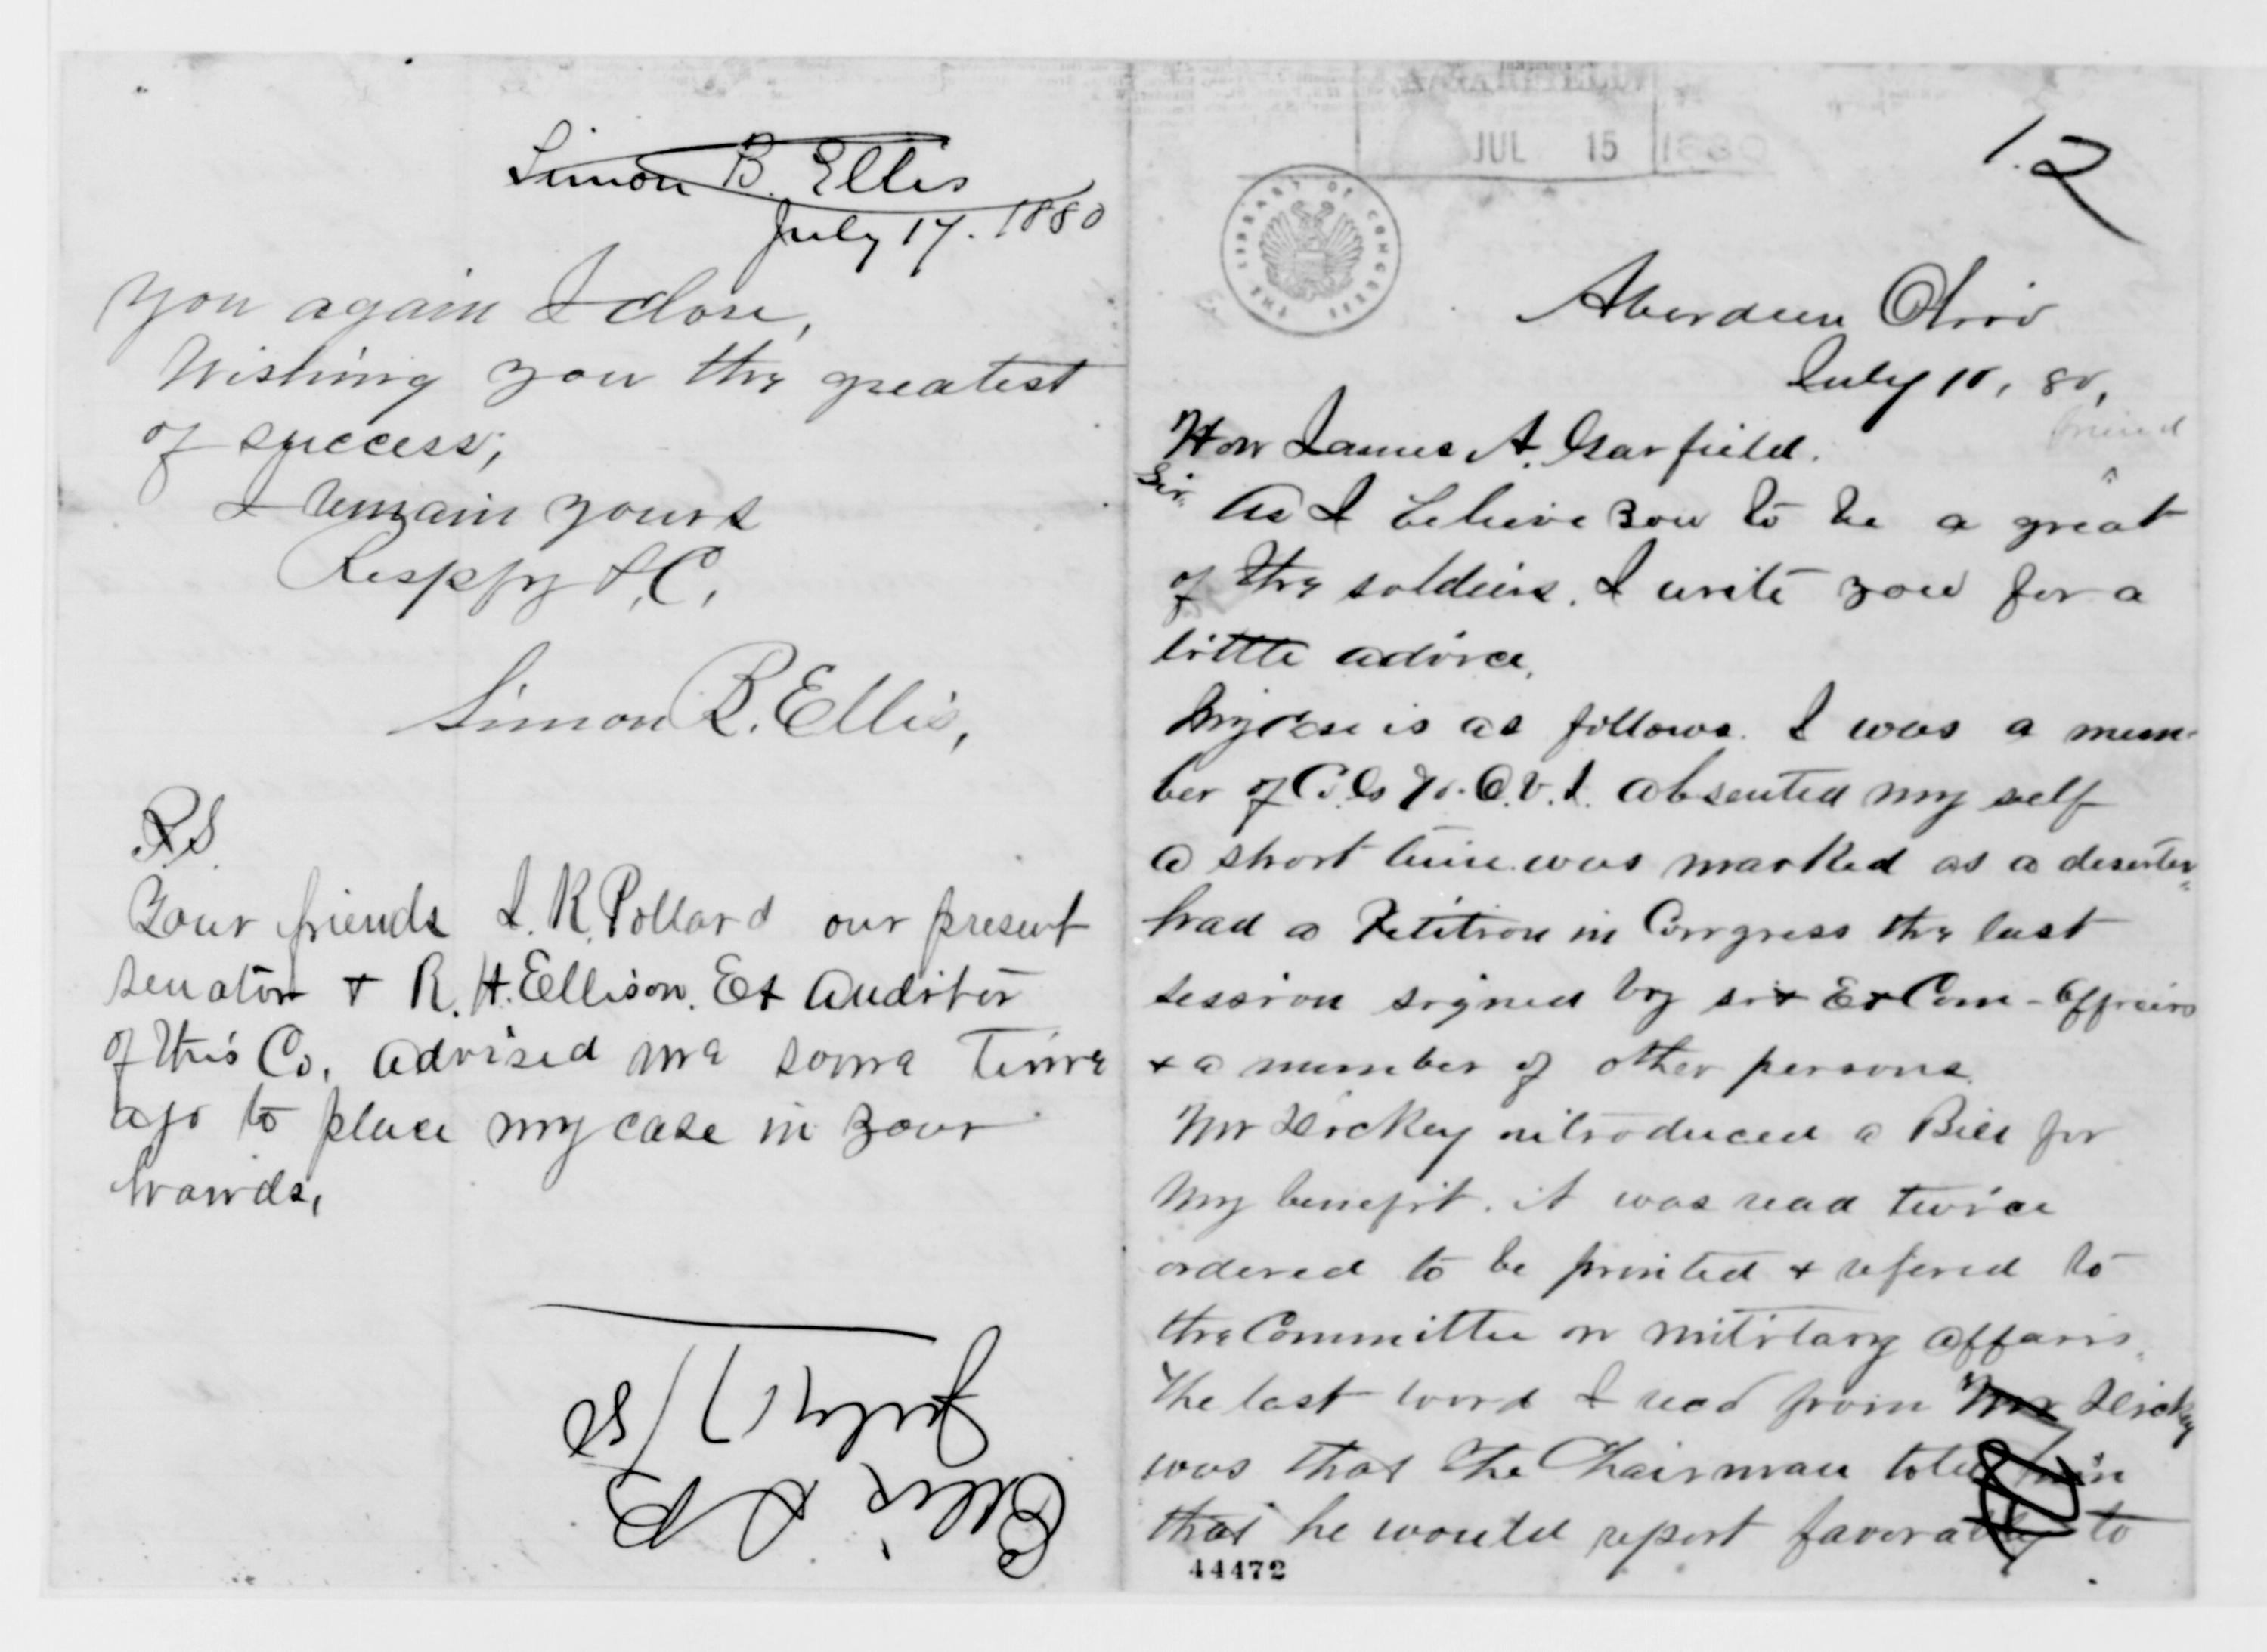 Simon B. Ellis
July 17. 1880
you again I close,
Wishing you the greatest
of success,
I remain yours
Respfy &C,
Simon B. Ellis,
P.S.
Your friends I. K. Pollard our present
senator + R. H. Ellison. Ex Auditor
of this Co. advised me some time
ago to place my case in your
hands,
Ellis S B
July 17/80
JUL 15 1880
12
THE LIBRARY OF CONGRESS
Aberdeen Ohio
July 10, 80,
Hon James A. Garfield.
friend
Sir. As I believe you to be a great ^
of the soldiers. I write you for a
little advice.
My case is as follows. I was a mem-
ber of C. Co 70. O.V.I. absented my self
a short time was marked as a deserter
had a Petition in Congress the last
session signed by six Ex Com-Officers
+ a number of other persons.
Mr Dickey introduced a Bill for
my benefit. it was read twice
ordered to be printed + refered to
the Committee on military affairs.
The last word I read from Mr Dickey
was that the Chairman told him
that he would report favorably to
44472